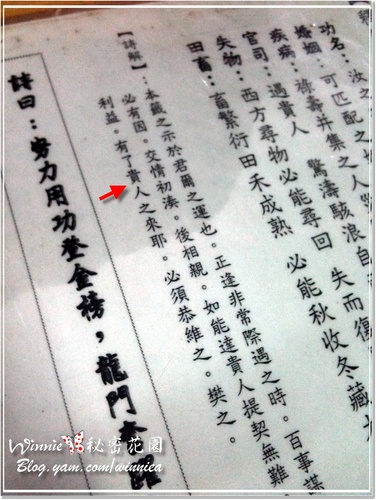 功名：汝之
婚姻：可匹配之
疾病：祿壽并集之人
官司：遇貴人 驚濤駭浪自
失物：西方尋物必能尋回 失而復
田畜：畜繁衍田禾成熟 必能秋收冬藏
【詩解】：本籤之示於君爾之運也。正逢非常際遇之時。百事謀
必有因。交情初湊。後相親。如能達貴人提契無難
利益。有了貴人之來耶。必須恭維之。樊之。
詩曰：努力用功登金榜，龍門
Winnie 秘密花園
Blog.yam.com/winnica